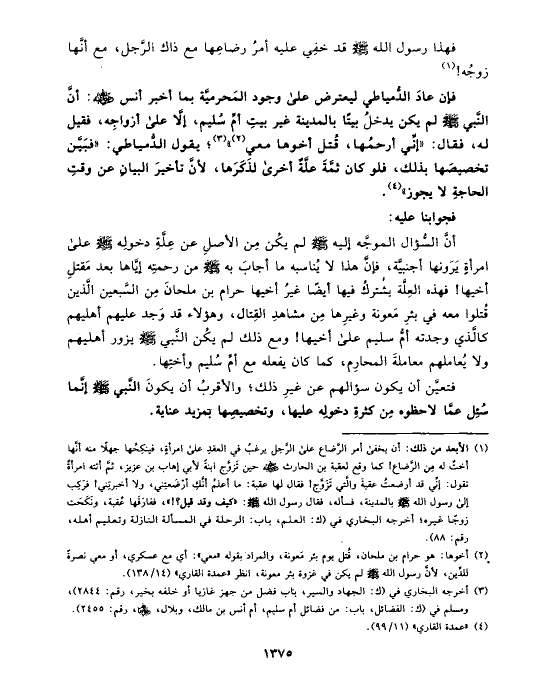 فهذا رسول الله ﷺ قد خفِي عليه أمرُ رضاعِها مع ذاك الرَّجل، مع أنَّها
زوجُه!(١)
فإن عادَ الدِّمياطي ليعترض علىٰ وجود المَحرميَّة بما أخبر أنس رضي الله عنه: أنَّ
النَّبي ﷺ لم يكن يدخلُ بيتًا بالمدينة غير بيتِ أمِّ سُليم، إلَّا علىٰ أزواجِه، فقيل
له، فقال: «إنِّي أرحمُها، قُتل أخوها معي(٢)»(٣)؛ يقول الدِّمياطي: «فبَيَّن
تخصيصَها بذلك، فلو كان ثمَّة علَّة أخرىٰ لذَكَرَها، لأنَّ تأخيرَ البيانِ عن وقتِ
الحاجةِ لا يجوز»(٤).
فجوابنا عليه:
أنَّ السُّؤال الموجَّه إليه ﷺ لم يكُن مِن الأصلِ عن عِلَّةِ دخولِه ﷺ علىٰ
امرأةٍ يَرَونها أجنبيَّة، فإنَّ هذا لا يُناسبه ما أجابَ به ﷺ من رحمتِه إيَّاها بعد مَقتلِ
أخيها! فهذه العِلَّة يشتركُ فيها أيضًا غيرُ أخيها حرام بن ملحان مِن السَّبعين الَّذين
قُتلوا معه في بئرِ مَعونة وغيرِها مِن مشاهدِ القِتال، وهؤلاء قد وَجد عليهم أهليهم
كالَّذي وجدته أمُّ سليم علىٰ أخيها! ومع ذلك لم يكُن النَّبي ﷺ يزور أهليهم
ولا يُعاملهم معاملةَ المحارِم، كما كان يفعله مع أمِّ سُليم وأختِها.
فتعيَّن أن يكون سؤالهم عن غيرِ ذلك؛ والأقربُ أن يكونَ النَّبي ﷺ إنَّما
سُئِل عمَّا لاحظوه مِن كثرةِ دخولِه عليها، وتخصيصِها بمزيد عناية.
(١) الأبعد من ذلك: أن يخفىٰ أمر الرَّضاع علىٰ الرَّجل يرغبُ في العقدِ علىٰ امرأةٍ، فينكِحُها جهلًا منه أنَّها
أختٌ له مِن الرَّضاع! كما وقع لعقبة بن الحارث رضي الله عنه حين تَزوَّج ابنةً لأبي إهاب بن عزيز، ثمَّ أتته امرأةٌ
تقول: إنِّي قد أرضعتُ عقبةَ والَّتي تَزوَّج! فقال لها عقبة: ما أعلمُ أنَّكِ أرْضَعتِني، ولا أخبرتِني! فرَكِب
إلىٰ رسول الله ﷺ بالمدينة، فسأله، فقال رسول الله ﷺ: «كيف وقد قيل؟!»، ففارَقَها عُقبة، ونَكَحَت
زوجًا غيره؛ أخرجه البخاري في (ك: العلم، باب: الرحلة في المسألة النازلة وتعليم أهله،
رقم: ٨٨).
(٢) أخوها: هو حرام بن ملحان، قُتل يوم بئر مَعونة، والمراد بقوله «معي»: أي مع عسكري، أو معي نصرةً
للدِّين، لأنَّ رسول الله ﷺ لم يكن في غزوة بئر معونة، انظر «عمدة القاري» (١٣٨/١٤).
(٣) أخرجه البخاري في (ك: الجهاد والسير، باب فضل من جهز غازيا أو خلفه بخير، رقم: ٢٨٤٤)،
ومسلم في (ك: الفضائل، باب: من فضائل أم سليم، أم أنس بن مالك، وبلال، رضي الله عنهما، رقم: ٢٤٥٥).
(٤) «عمدة القاري» (٩٩/١١).
١٣٧٥